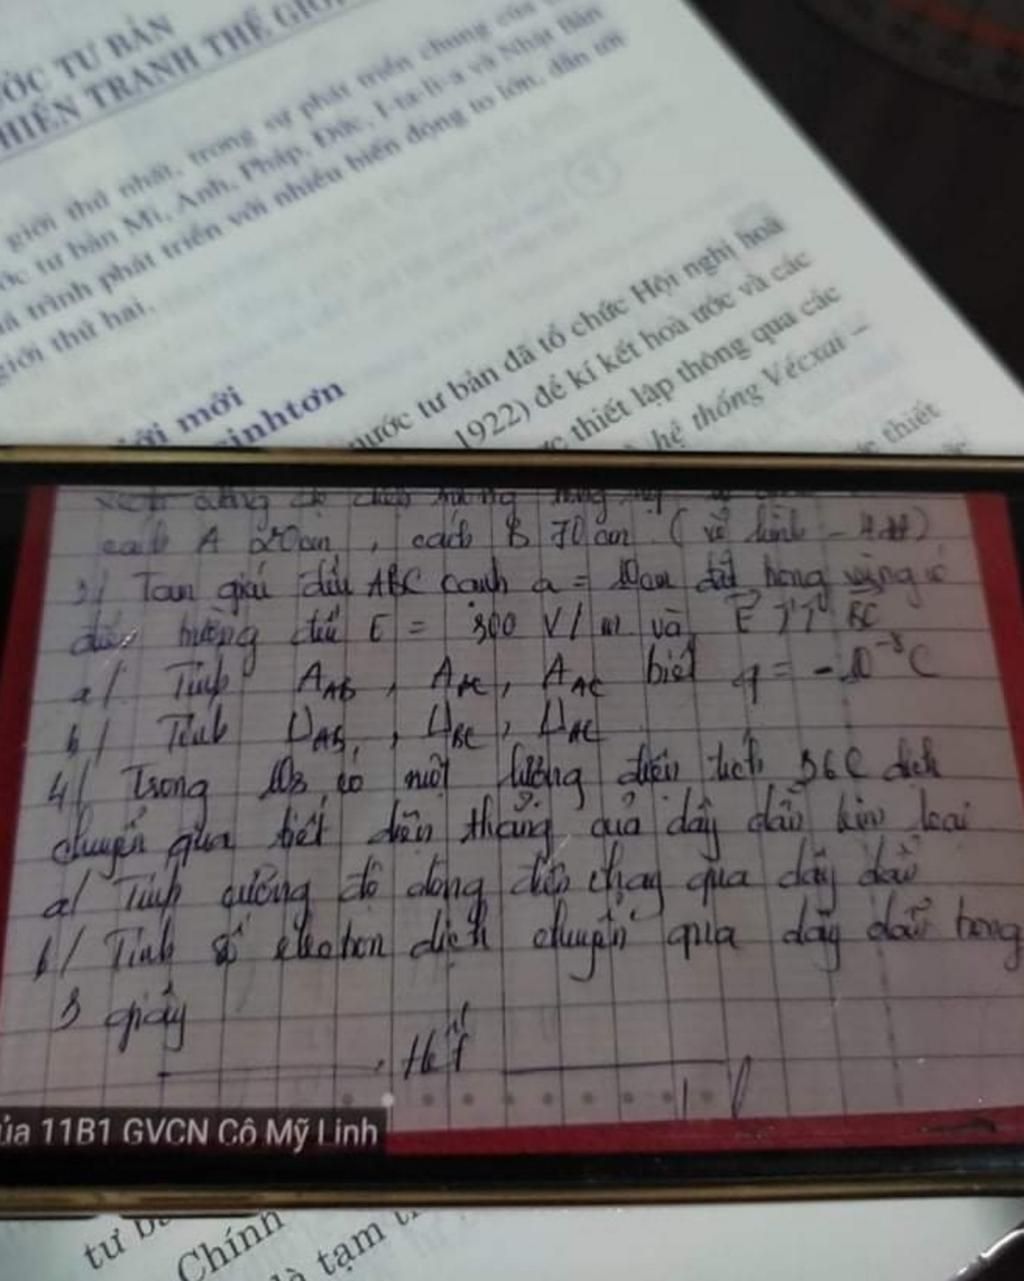 ỚC TƯ BẢN
HIẾN TRANH THẾ GIỚ
giới thứ nhất, trong sự phát triển chung của
ớc tư bản Mĩ, Anh, Pháp, Đức, I-ta-li-a và Nhật Bản
á trình phát triển với nhiều biến động to lớn, dẫn tới
giới thứ hai.
ới mới
sinhtơn
nước tư bản đã tổ chức Hội nghị hoà
1922) để kí kết hoà ước và các
c thiết lập thông qua các
hệ thống Vécxai –
thiết
cách A 20cm, cách B 70cm (vẽ hình
3/ Tam giác đều ABC cạnh a = 10cm đặt trong vùng có
điện trường đều E = 300 V/m và E ↑↑ BC
a/ Tính A_AB, A_BC, A_AC biết q = -10⁻⁸C
b/ Tính U_AB, U_BC, U_AC
4/ Trong 10s có một lượng điện tích 36C dịch
chuyển qua tiết diện thẳng của dây dẫn kim loại
a/ Tính cường độ dòng điện chạy qua dây dẫn
b/ Tính số electron dịch chuyển qua dây dẫn trong
3 giây
Hết
ủa 11B1 GVCN Cô Mỹ Linh
tư b
Chính
là tạm t